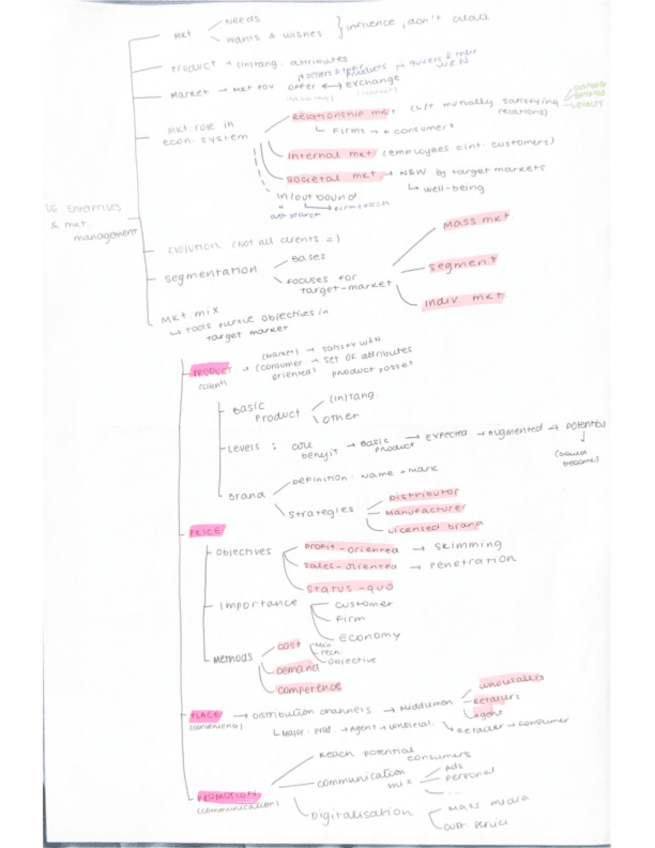 Needs
MKT
wants & wishes
influence, don't create
Product → (in)tang. attributes
Market → MKT POV
offer ↔ exchange
MKT role in
econ. system
Relationship mkt (L/T mutually satisfying
relations)
LOYALTY
↳ Firms → + consumers
Internal mkt (employees = int. customers)
Societal mkt → N&W by target markets
↳ well-being
in/out bound
U6 Enterprises
& mkt
management
Evolution (Not all clients =)
segmentation
Bases
Focuses for
target-market
Mass mkt
segment
Indiv. mkt
MKT mix
↳ Tools pursue objectives in
target market
PRODUCT
(client)
→ (Market) → satisfy W&N
→ (consumer → set of attributes
oriented) product posses
Basic
Product
(in)tang.
other
Levels : core
benefit → Basic
product → Expected → Augmented → Potential
Brand
Definition: Name + Mark
Strategies
Distributor
Manufacturer
Licensed brand
PRICE
Objectives
Profit-oriented → Skimming
Sales-oriented → Penetration
Status-quo
Importance
Customer
Firm
Economy
Methods
cost
Objective
Demand
Competence
PLACE
→ Distribution channels → Middlemen
wholesalers
Retailers
Agent
↳ Major: Prod. → Agent → wholesal.
↳ Retailer → consumer
PROMOTION
(communication)
Reach potential
consumers
communication
mix
Ads
Personal
...
Digitalisation
Mass media
cust service